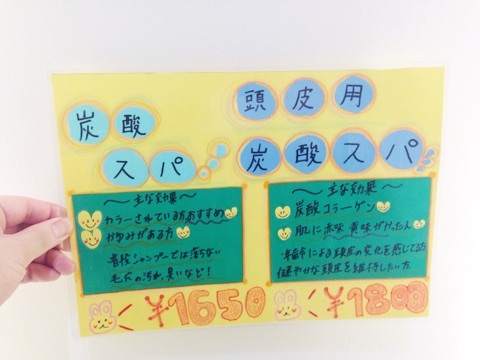 炭酸
スパ
～主な効果～
カラーされている方おすすめ
かゆみがある方
普段シャンプーでは落ちない
毛穴の汚れ、臭いなど!
¥1650
頭皮用
炭酸スパ
～主な効果～
炭酸コラーゲン
肌に赤味 黄味がかった人
年齢による頭皮の変化を感じてる方
健やかな頭皮を維持したい方。
¥1800